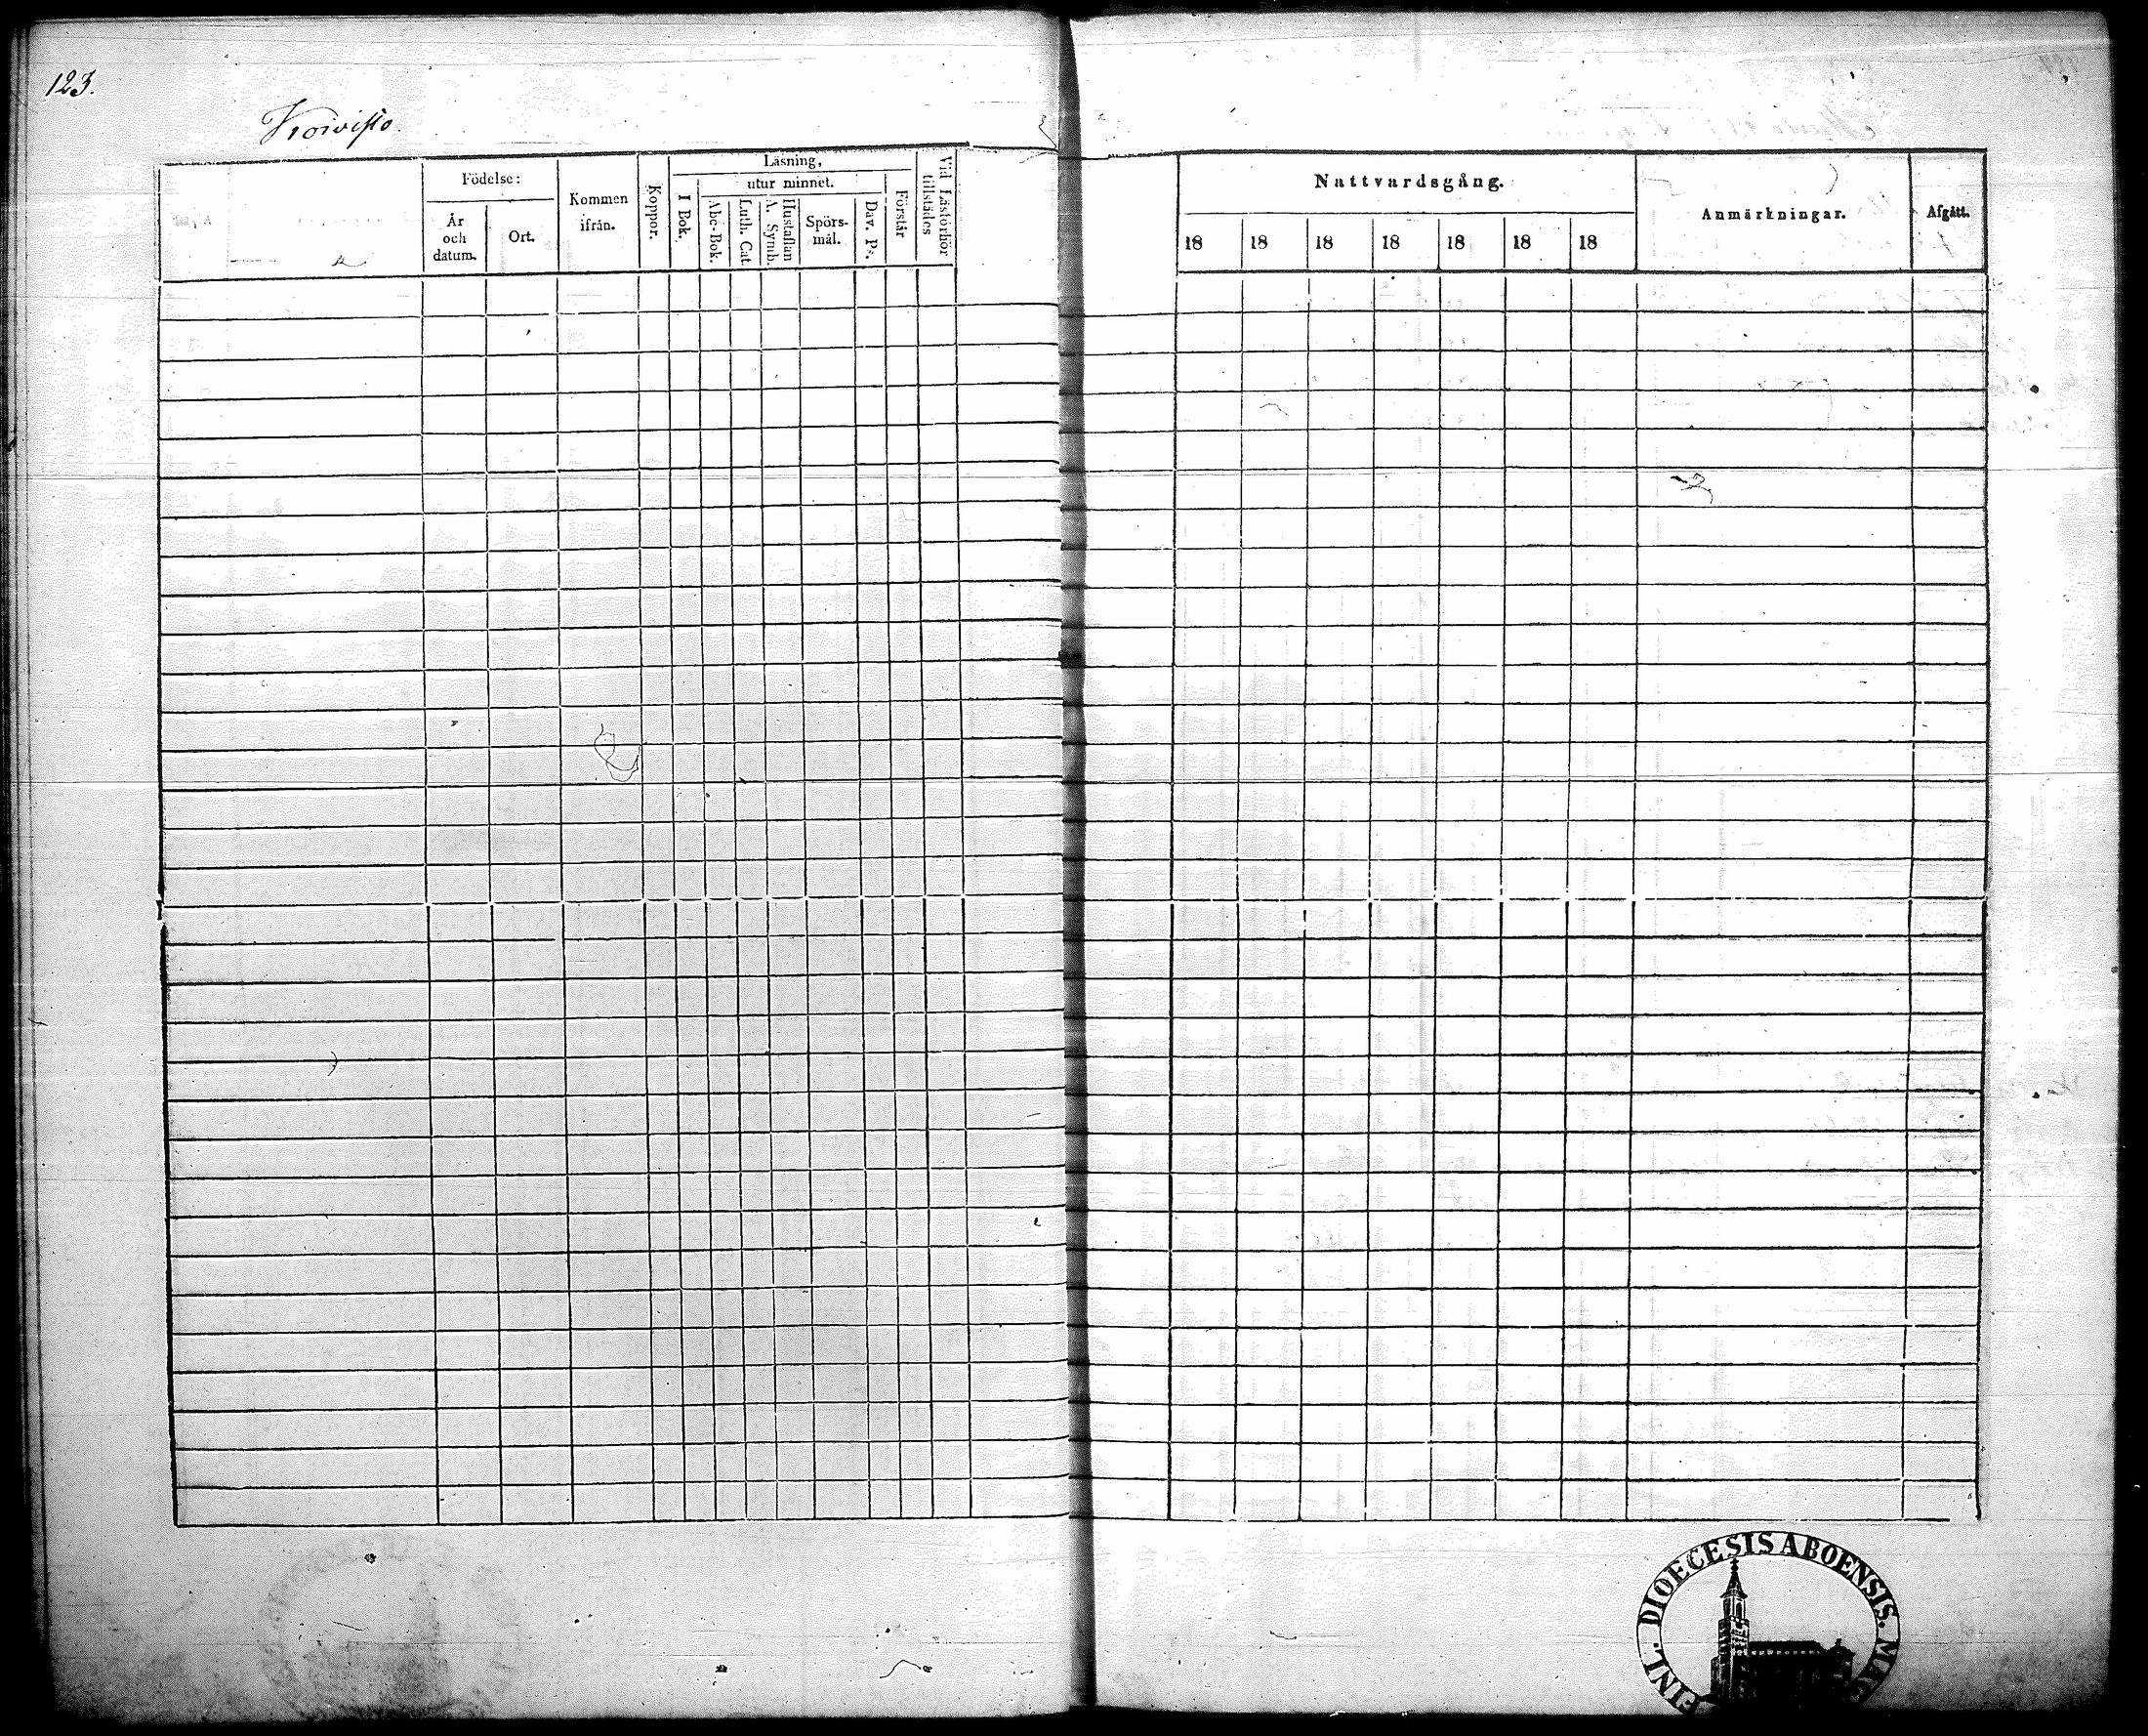 123.
Koivisto.
Födelse:
År och datum.
Ort.
Kommen ifrån.
Koppor.
Läsning,
I Bok.
utur minnet.
Abc-Bok.
Luth. Cat.
Hustaflan A. Symb.
Spörs-mål.
Dav. Ps.
Förstår
Vid Läsförhör tillstädes
Nattvardsgång.
18 18 18 18 18 18 18
Anmärkningar.
Afgått.
FINL. DIOECESIS ABOENSIS. MAG